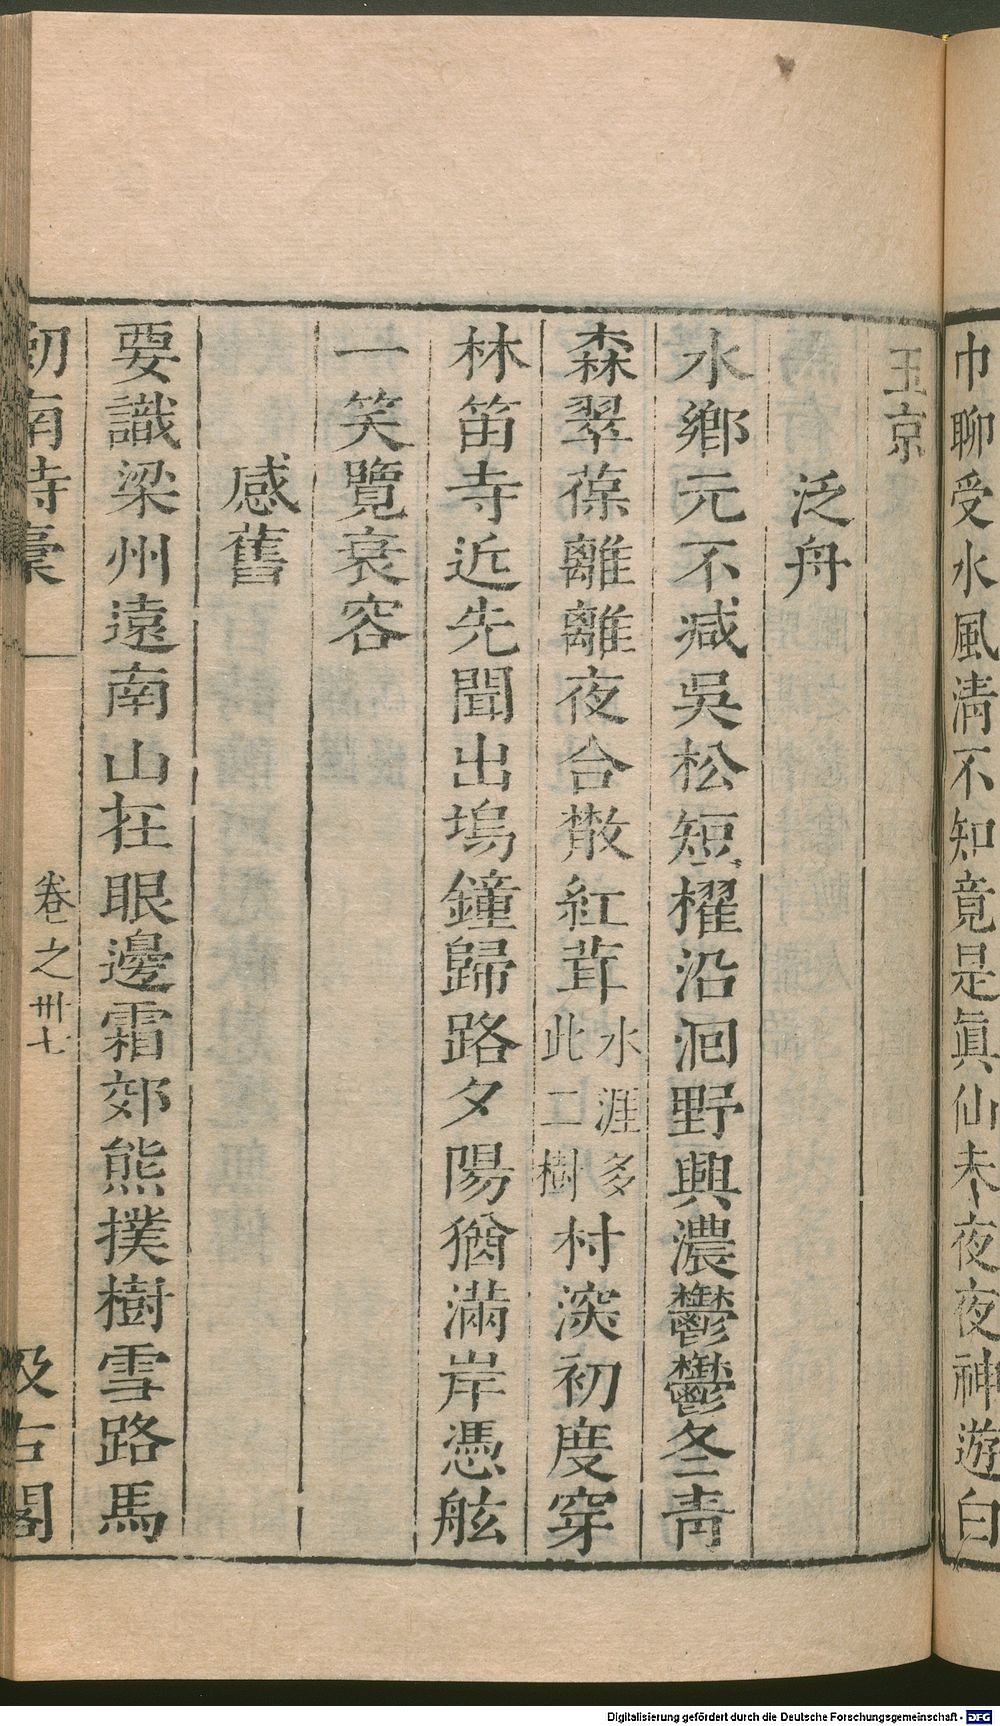 巾聊受水風淸不知竟是眞仙未夜夜神遊白
玉京
泛舟
水鄉元不减吳松短櫂沿洄野興濃鬱鬱冬青
森翠葆離離夜合散紅茸水涯多此二樹村深初度穿
林笛寺近先聞出塢鐘歸路夕陽猶滿岸憑舷
一笑覽衰容
感舊
要識梁州遠南山在眼邊霜郊熊撲樹雪路馬
劍南詩稾 卷之卅七 汲古閣
Digitalisierung gefördert durch die Deutsche Forschungsgemeinschaft - DFG